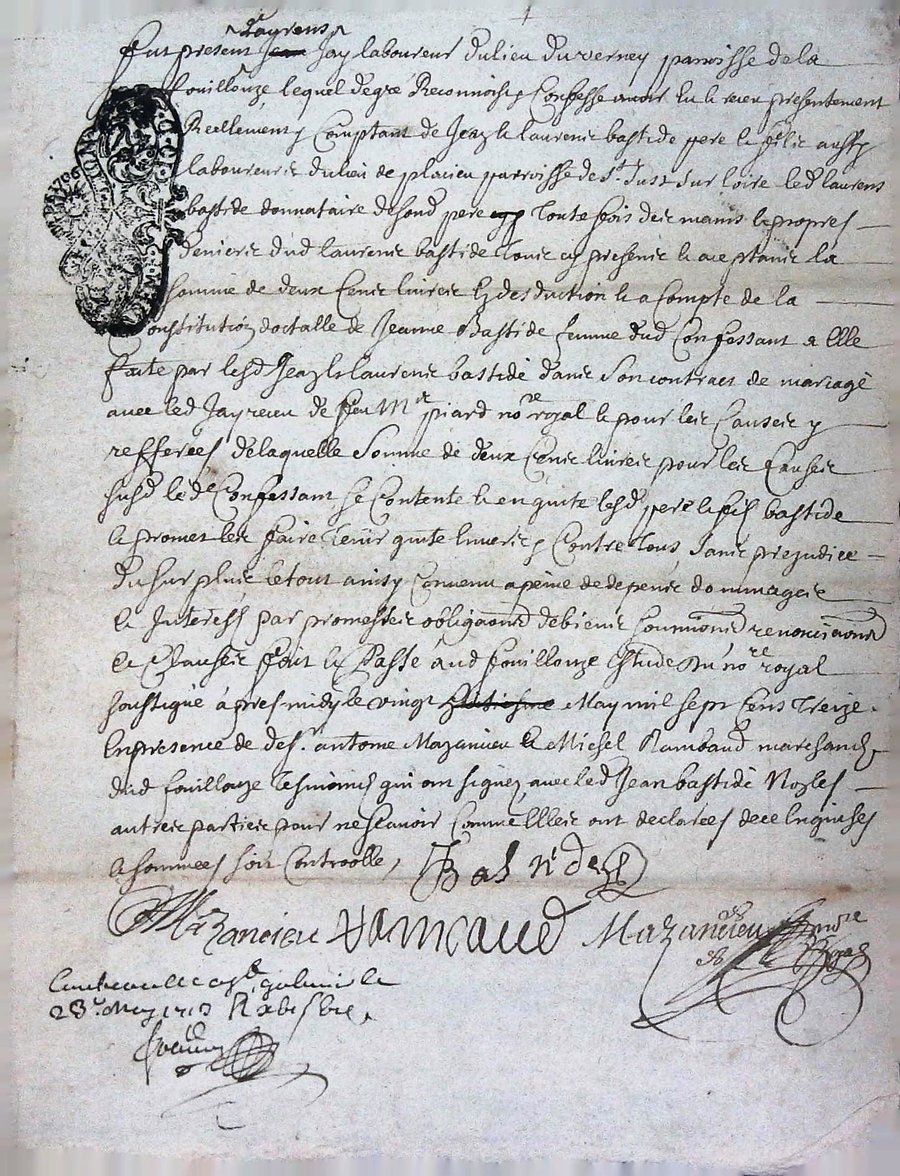 Laurens
Fut present Jean Jay laboureur du lieu du verney parroisse de la
fouillouze lequel de gré Reconnoist Confesse avoir Eu & receu presentement
Reellement Comptant de Jean & laurens bastide pere & filz aussy
laboureurs du lieu de placieu parroisse de St Just sur loire led laurens
bastide donnataire desond pere Toutefois des mains & propres
deniers dud laurens bastide Tous cy presents & aceptants la
somme de deux Cents livres En desduction & a Compte de la
Constitution doctalle de Jeanne Bastide femme dud Confessant a Elle
faite par lesd Jean & laurens bastide dans son contract de mariage
avec led Jay receu de feu Mre piard nore royal & pour les Causes y
refferées de laquelle somme de deux Cents livres pour les Causes
susd led Confessant se Contente & en quite lesd pere & fils bastide
& promet les faire Tenir quite Envers Contre Tous sans prejudice
du surplus le tout ainsy Convenu a peine de depens dommages
& Interests par promesses obligaons de biens soumissions renonciaons
& Clauses fait & Passé aud fouillouze Estude du nore royal
soussigné apres midy le vingt May mil sept cens Treize
En presence de de sr antoine Mazancieu & Michel Rambaud marchands
dud fouillouze Tesmoins qui ont signez avec led Jean bastide Non les
autres parties pour ne scavoir Comme Elles ont declarées de ce Enquises
& sommées soit Controollé
Bastide
Mazancieu Ramaud Mazancieu
Controollé a St galmier le
23e May 1713 R